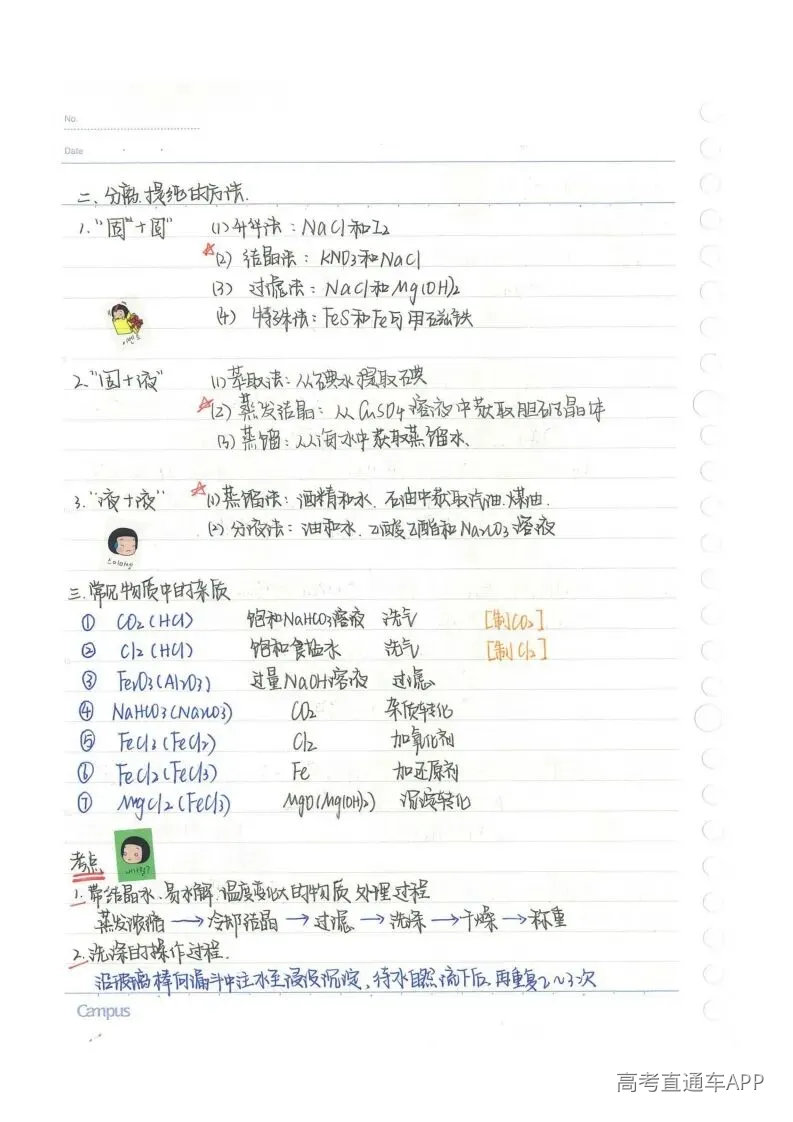 No.
Date
二、分离.提纯的方法.
1."固"+固" (1)升华法：NaCl和I2
(2) 结晶法：KNO3和NaCl
(3) 过滤法：NaCl和Mg(OH)2
(4) 特殊法：FeS和Fe可用磁铁
2."固+液" (1)萃取法：从碘水提取碘
(2)蒸发结晶：从CuSO4溶液中获取胆矾晶体
(3)蒸馏：从海水中获取蒸馏水.
3."液+液" (1)蒸馏法：酒精和水.石油中获取汽油.煤油.
(2)分液法：油和水.乙酸乙酯和Na2CO3溶液
三.常见物质中的杂质
① CO2(HCl) 饱和NaHCO3溶液 洗气 [制CO2]
② Cl2(HCl) 饱和食盐水 洗气 [制Cl2]
③ Fe2O3(Al2O3) 过量NaOH溶液 过滤
④ NaHCO3(Na2CO3) CO2 杂质转化
⑤ FeCl3(FeCl2) Cl2 加氧化剂
⑥ FeCl2(FeCl3) Fe 加还原剂
⑦ MgCl2(FeCl3) MgO(Mg(OH)2) 沉淀转化
考点
1.带结晶水.易水解.温度变化大的物质处理过程
蒸发浓缩→冷却结晶→过滤→洗涤→干燥→称重
2.洗涤的操作过程.
沿玻璃棒向漏斗中注水至浸没沉淀,待水自然流下后.再重复2~3次
Campus
高考直通车APP